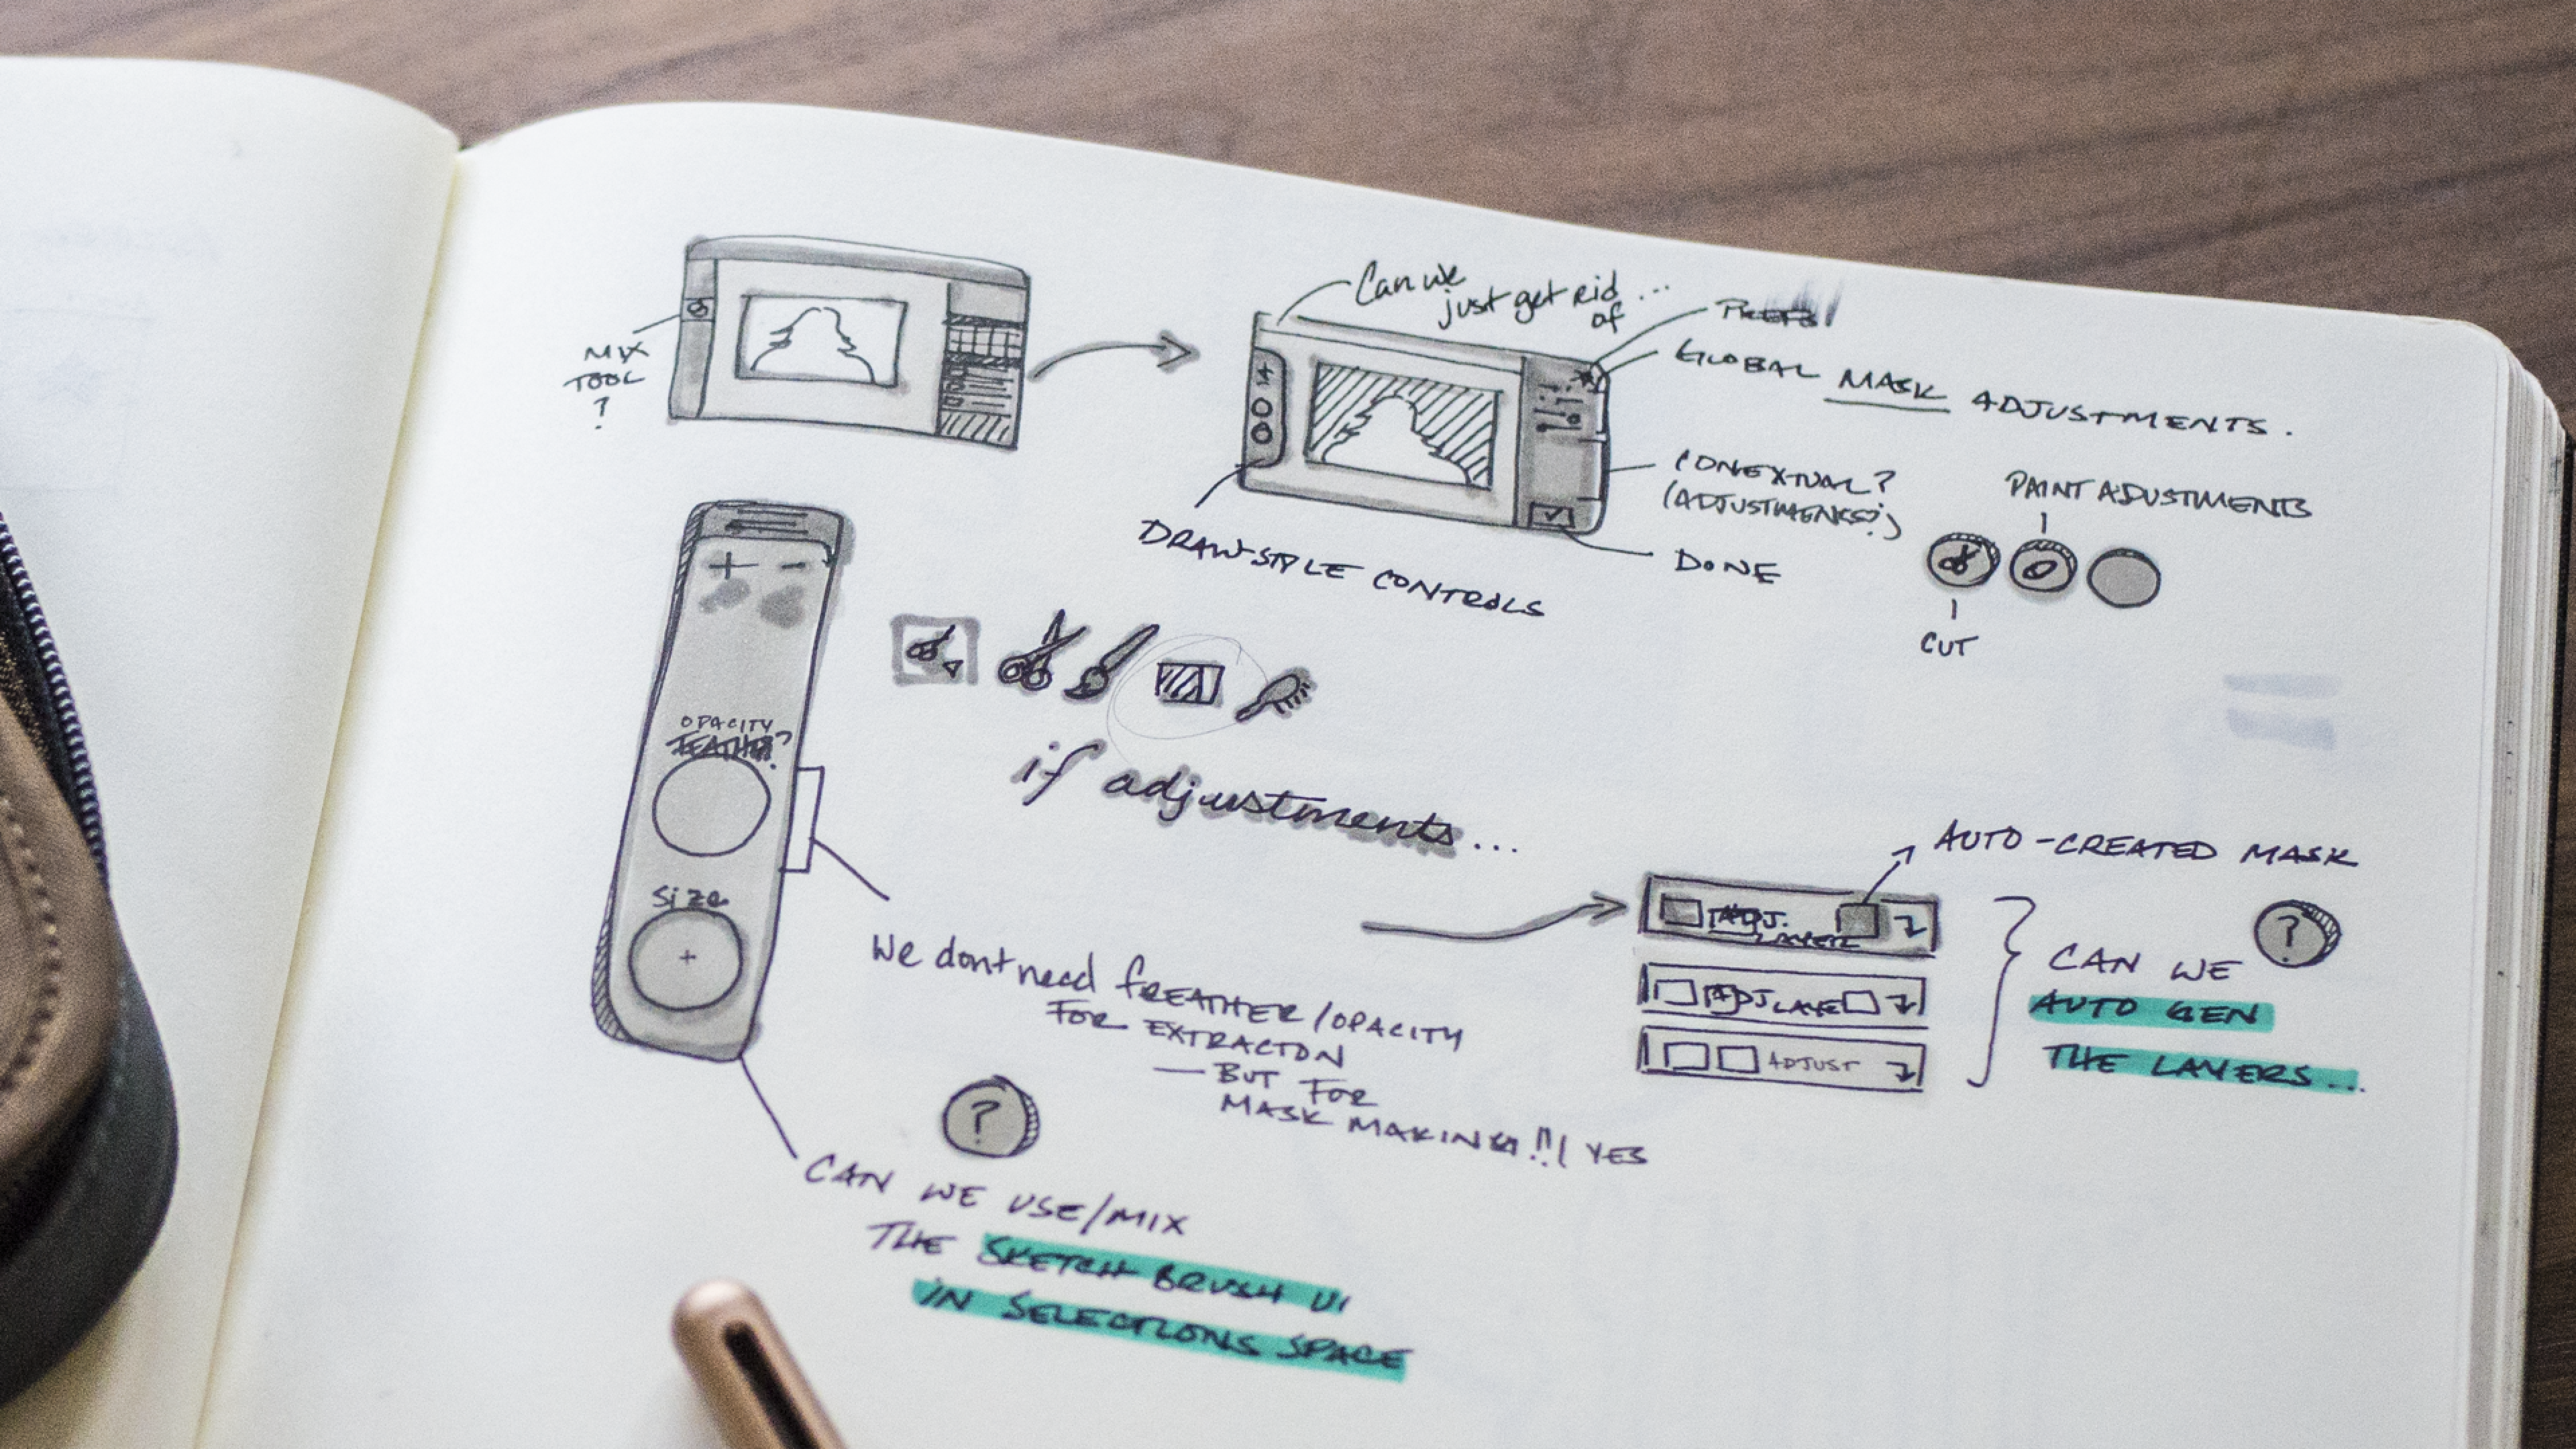 MIX
TOOL
?
Can we
just get rid ...
of
GLOBAL MASK ADJUSTMENTS.
CONEXTUAL?
(ADJUSTMENTS?)
DONE
DRAW-STYLE CONTROLS
PAINT ADJUSTMENTS
CUT
+ -
OPACITY
FEATHER?
Size
+
if adjustments...
We dont need FREATHER/OPACITY
FOR EXTRACTON
— BUT FOR
MASK MAKING!!! YES
?
CAN WE USE/MIX
THE SKETCH BRUSH UI
IN SELECTIONS SPACE
AUTO-CREATED MASK
ADJ.
LAYER
ADJ LAYER
ADJUST
?
CAN WE
AUTO GEN
THE LAYERS...